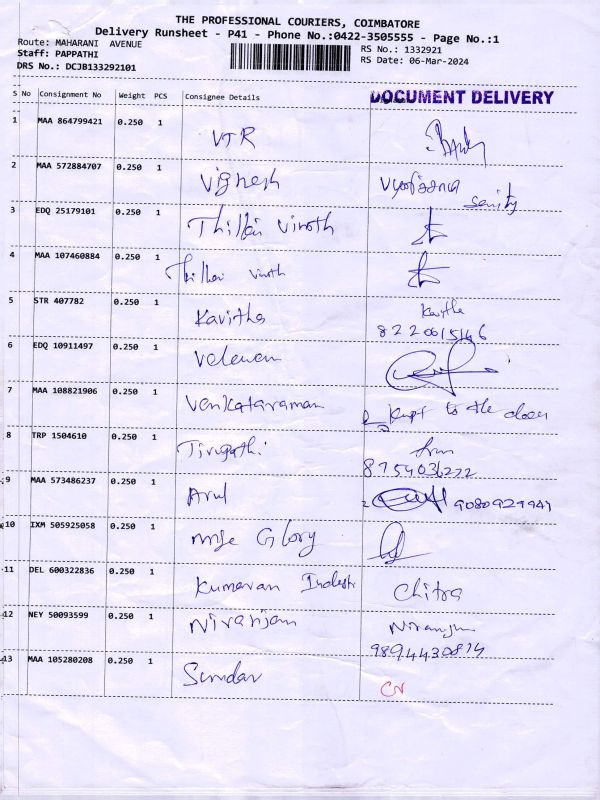 THE PROFESSIONAL COURIERS, COIMBATORE
Delivery Runsheet - P41 - Phone No.:0422-3505555 - Page No.:1
Route: MAHARANI AVENUE
RS No.: 1332921
Staff: PAPPATHI
RS Date: 06-Mar-2024
DRS No.: DCJB133292101
S No Consignment No Weight PCS Consignee Details DOCUMENT DELIVERY
1 MAA 864799421 0.250 1 VTR
2 MAA 572884707 0.250 1 Vignesh
3 EDQ 25179101 0.250 1 Thillai Vinoth
4 MAA 107460884 0.250 1 Thillai Vinoth
5 STR 407782 0.250 1 Kavitha Kavitha
8220615146
6 EDQ 10911497 0.250 1
7 MAA 108821906 0.250 1 Venkataraman Kept to the door
8 TRP 1504610 0.250 1 Tirupathi
8754036272
9 MAA 573486237 0.250 1 Arul
10 IXM 505925058 0.250 1 Glory
11 DEL 600322836 0.250 1 Kumaran Chitra
12 NEY 50093599 0.250 1 Niranjan
9894430814
13 MAA 105280208 0.250 1 Sundar